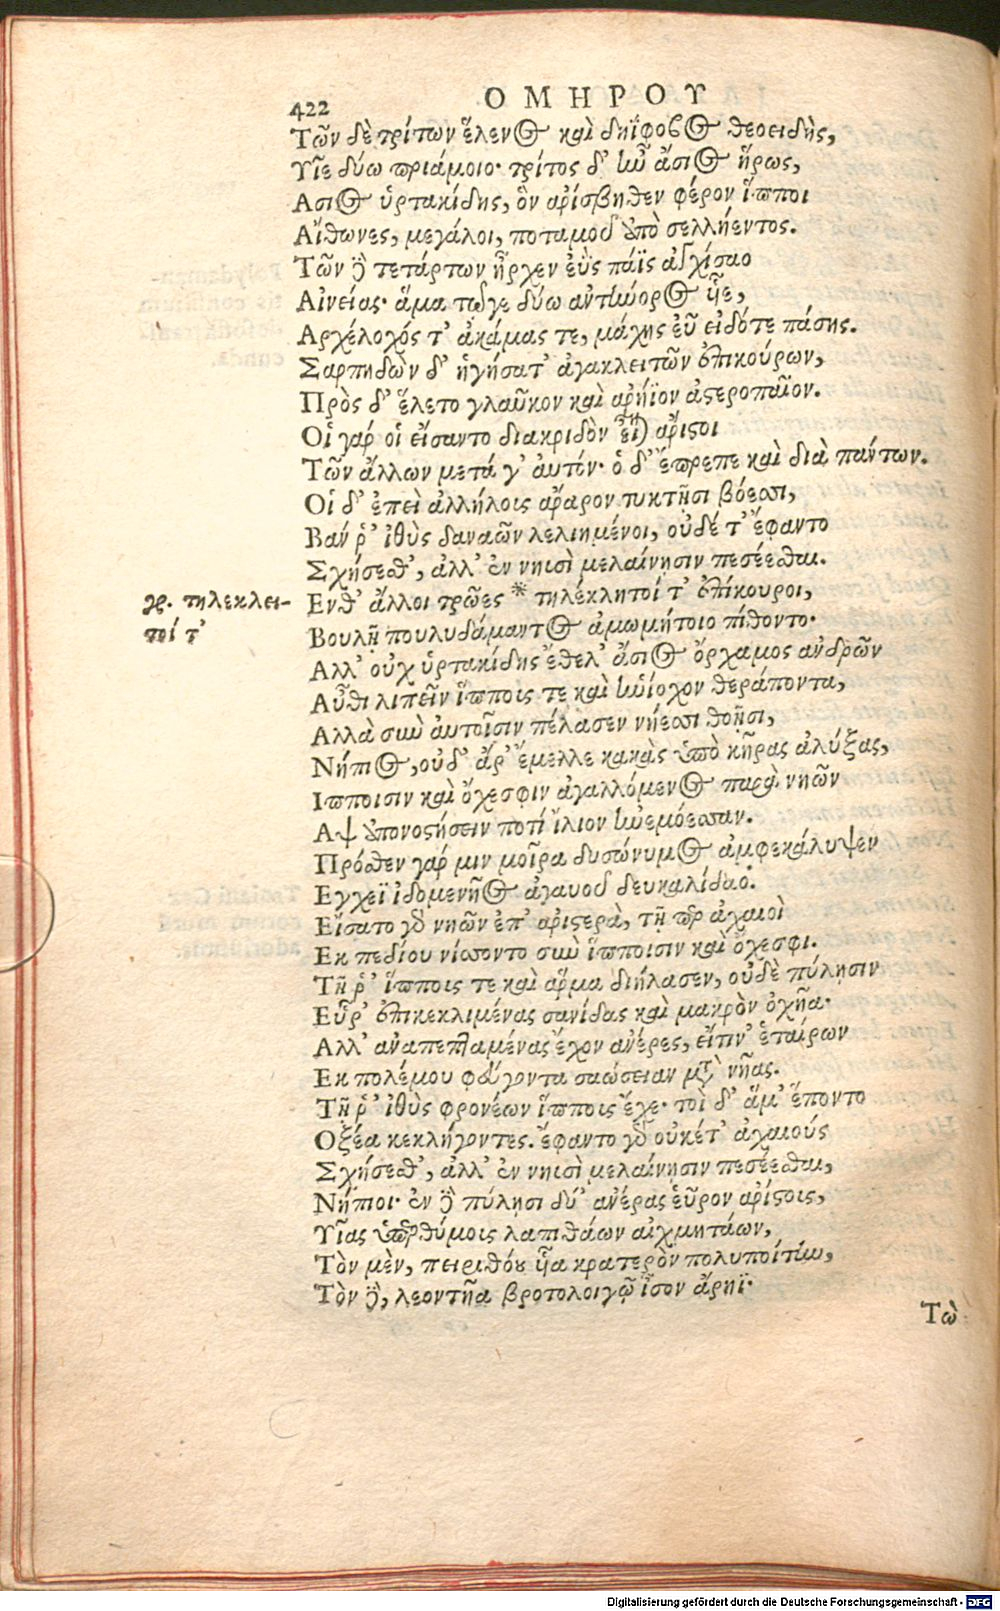 422
ΟΜΗΡΟΥ
Τῶν δὲ τρίτων ἕλενος καὶ δηΐφοβος θεοειδὴς,
Υἷε δύω πριάμοιο· τρίτος δ' ἦν ἄσιος ἥρως,
Ασιος ὑρτακίδης, ὃν ἀρίσβηθεν φέρον ἵπποι
Αἴθωνες, μεγάλοι, ποταμοῦ ἄπο σελλήεντος.
Τῶν δὲ τετάρτων ἦρχεν ἐῢς πάϊς ἀγχίσαο
Αἰνείας· ἅμα τῷγε δύω ἀντήνορος ἧε,
Αρχέλοχός τ' ἀκάμας τε, μάχης εὖ εἰδότε πάσης.
Σαρπηδὼν δ' ἡγήσατ' ἀγακλειτῶν ἐπικούρων,
Πρὸς δ' ἕλετο γλαῦκον καὶ ἀρήϊον ἀστεροπαῖον.
Οἱ γάρ οἱ εἴσαντο διακριδὸν εἶναι ἄριστοι
Τῶν ἄλλων μετά γ' ἀυτόν· ὁ δ' ἔπρεπε καὶ διὰ πάντων.
Οἱ δ' ἐπεὶ ἀλλήλοις ἄραρον τυκτῇσι βόεσσι,
Βάν ῥ' ἰθὺς δαναῶν λελιημένοι, οὐδέ τ' ἔφαντο
Σχήσεσθ', ἀλλ' ἐν νηυσὶ μελαίνησιν πεσέεσθαι.
Ενθ' ἄλλοι τρῶες * τηλέκλητοί τ' ἐπίκουροι,
γρ. τηλεκλει-
τοί τ'
Βουλῇ πουλυδάμαντος ἀμωμήτοιο πίθοντο·
Αλλ' οὐχ ὑρτακίδης ἔθελ' ἄσιος ὄρχαμος ἀνδρῶν
Αὖθι λιπεῖν ἵπποις τε καὶ ἡνίοχον θεράποντα,
Αλλὰ σὺν ἀυτοῖσιν πέλασεν νήεσσι θοῇσι,
Νήπιος, οὐδ' ἄρ' ἔμελλε κακὰς ὑπὸ κῆρας ἀλύξας,
Ιπποισιν καὶ ὄχεσφιν ἀγαλλόμενος παρὰ νηῶν
Αψ ἀπονοστήσειν ποτί ἴλιον ἠνεμόεσσαν.
Πρόσθεν γάρ μιν μοῖρα δυσώνυμος ἀμφεκάλυψεν
Εγχεϊ ἰδομενῆος ἀγαυοῦ δευκαλίδαο.
Εἴσατο γὰρ νηῶν ἐπ' ἀριστερὰ, τῇ περ ἀχαιοὶ
Εκ πεδίου νίσσοντο σὺν ἵπποισιν καὶ ὄχεσφι.
Τῇ ῥ' ἵπποις τε καὶ ἅρμα διήλασεν, οὐδὲ πύλησιν
Εὗρ' ἐπικεκλιμένας σανίδας καὶ μακρὸν ὀχῆα·
Αλλ' ἀναπεπταμένας ἔχον ἀνέρες, εἴτιν' ἑταίρων
Εκ πολέμου φεύγοντα σαώσειαν μετὰ νῆας.
Τῇ ῥ' ἰθὺς φρονέων ἵπποις ἔχε· τοὶ δ' ἅμ' ἕποντο
Οξέα κεκλήγοντες. ἔφαντο γὰρ οὐκέτ' ἀχαιοὺς
Σχήσεσθ', ἀλλ' ἐν νηυσὶ μελαίνησιν πεσέεσθαι,
Νήπιοι· ἐν δὲ πύλησι δύ' ἀνέρας εὗρον ἀρίστοις,
Υἷας ὑπερθύμοις λαπιθάων αἰχμητάων,
Τὸν μὲν, πειριθόου ἧα κρατερὸν πολυποίτην,
Τὸν δὲ, λεοντῆα βροτολοιγῷ ἶσον ἄρηϊ·
Τὼ
Digitalisierung gefördert durch die Deutsche Forschungsgemeinschaft - DFG